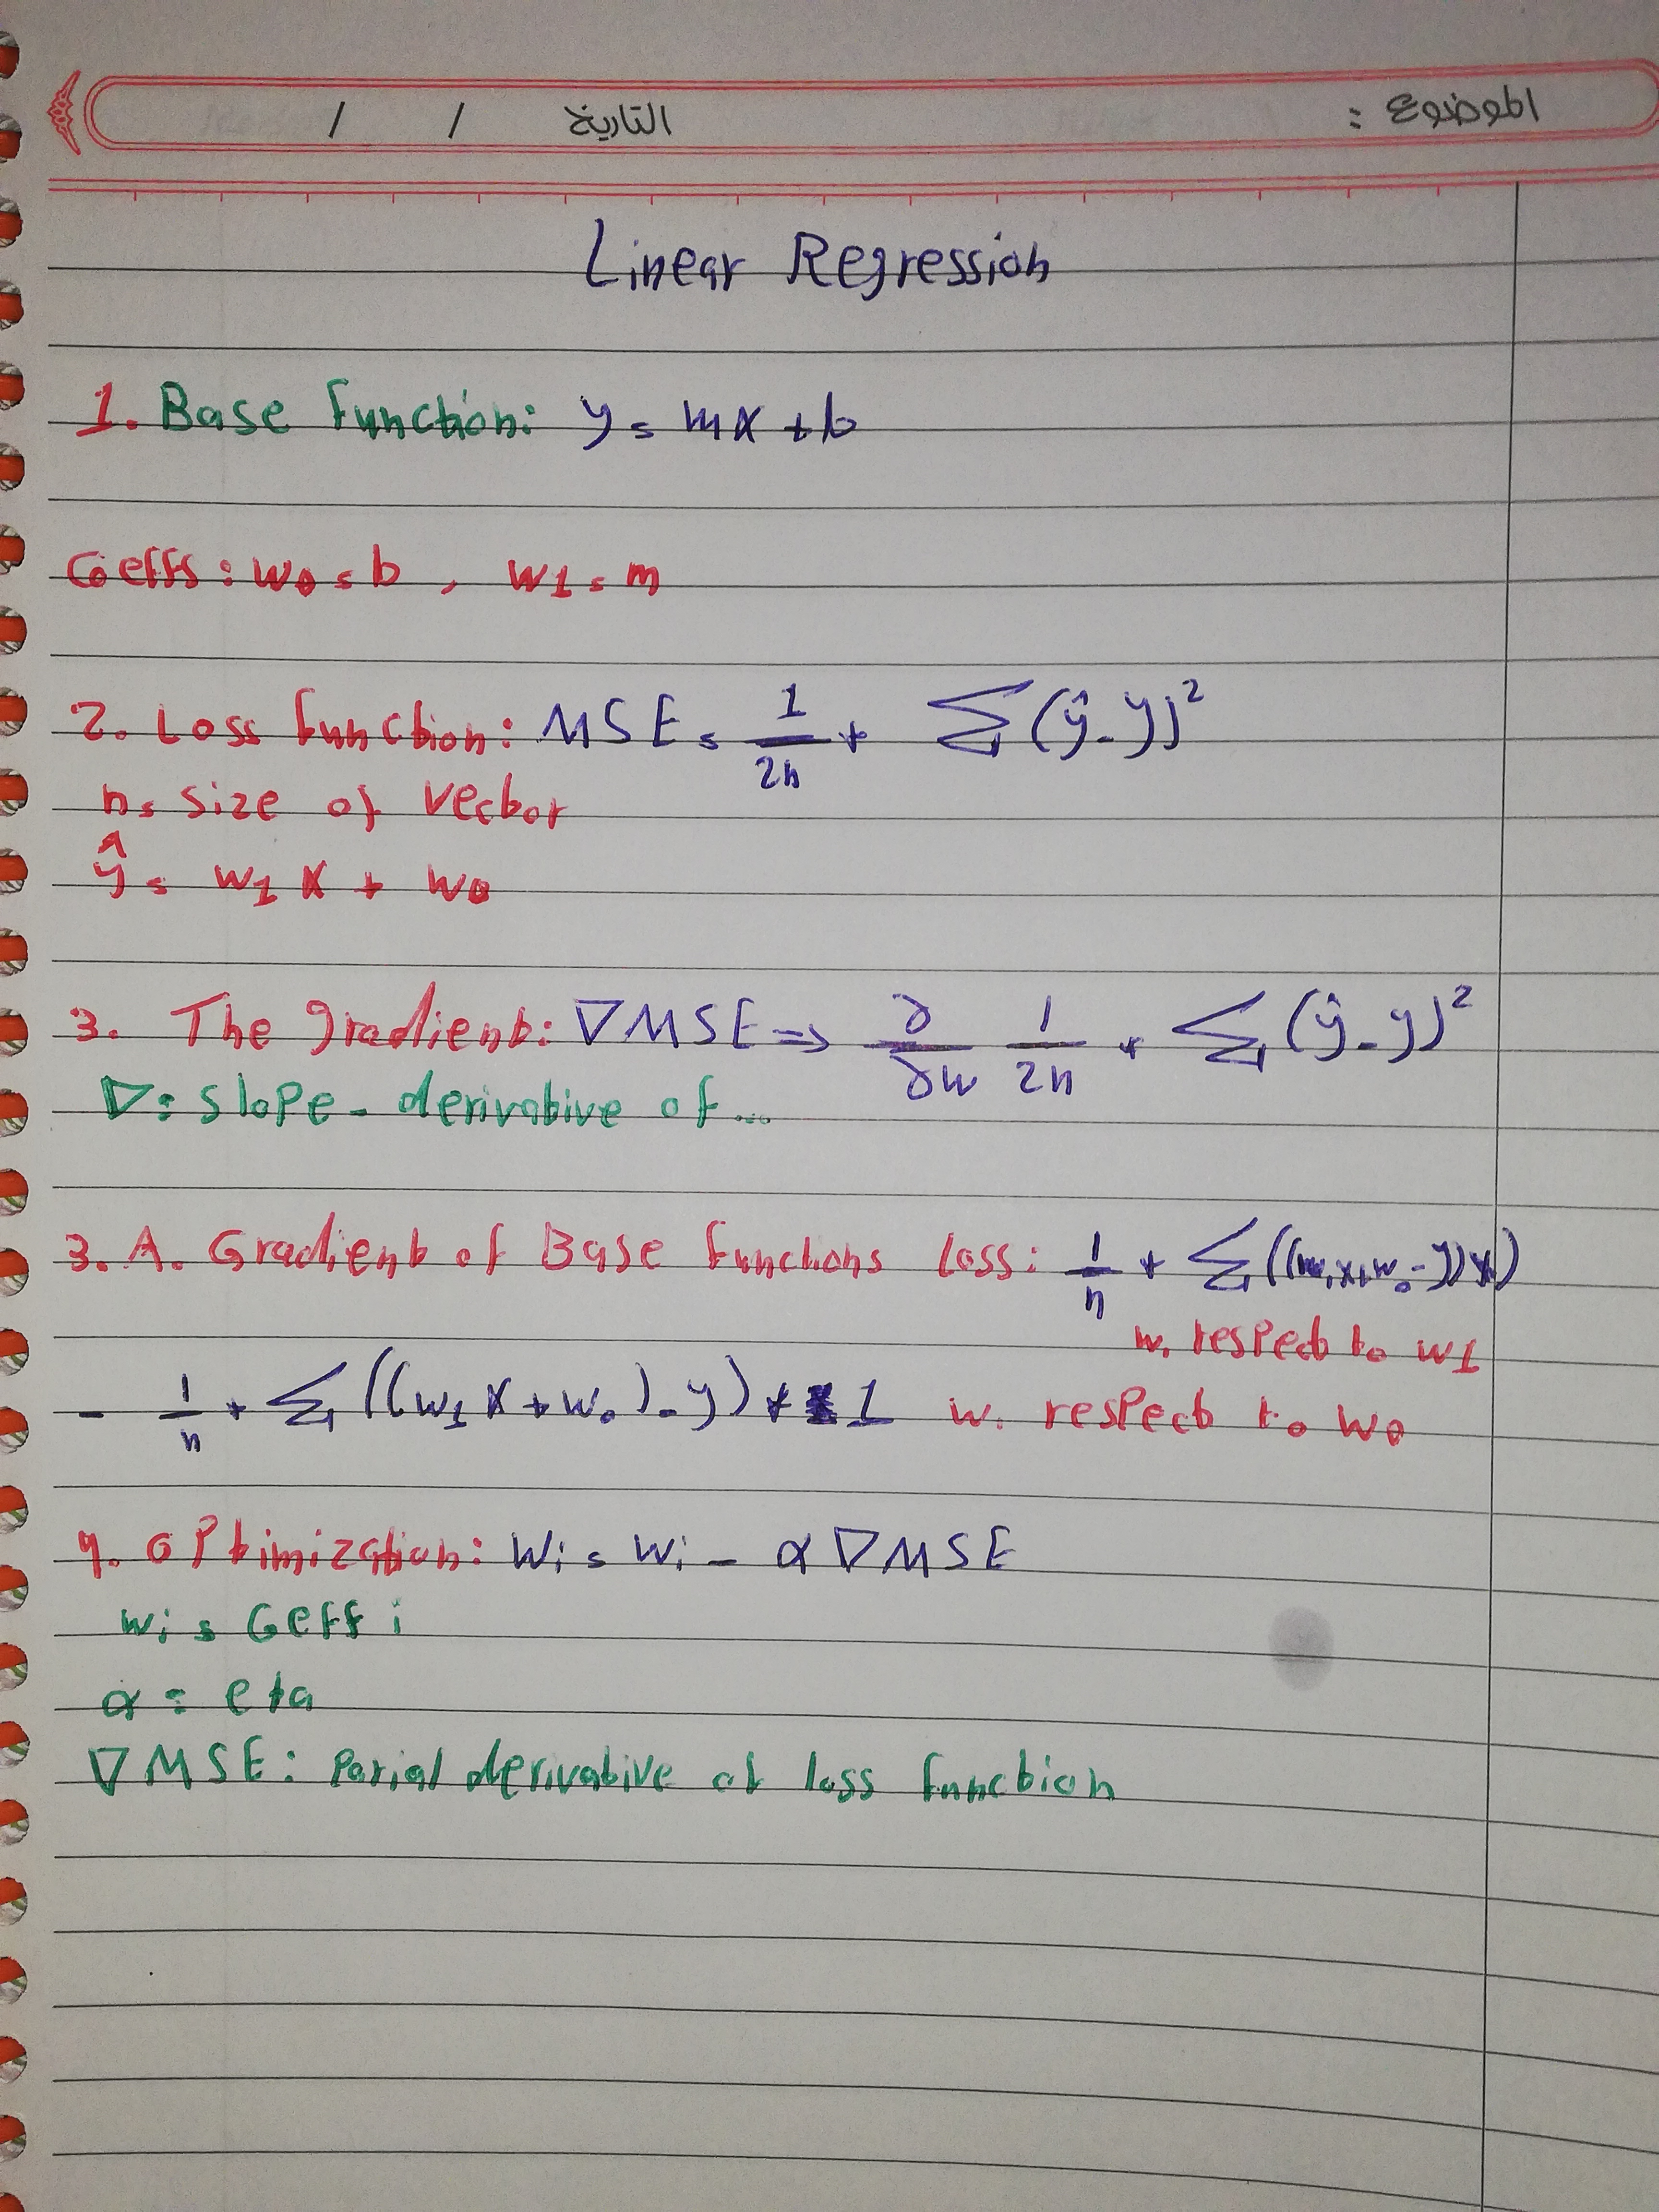 الموضوع : التاريخ / /
Linear Regression
1. Base function: y = mx + b
Coeffs: w0 = b , w1 = m
2. Loss function: MSE = 1/2n * ∑(ŷ - y)²
n = size of vector
ŷ = w1 x + w0
3. The gradient: ∇MSE => ∂/∂w 1/2n * ∑(ŷ - y)²
∇: slope - derivative of ...
3. A. Gradient of Base functions loss: 1/n * ∑((w1x+w0 - y) x)
w. respect to w1
- 1/n * ∑((w1 x + w0) - y) * 1 w. respect to w0
4. optimization: wi = wi - α∇MSE
wi = Coeff i
α = eta
∇MSE: Parial derivative of loss function